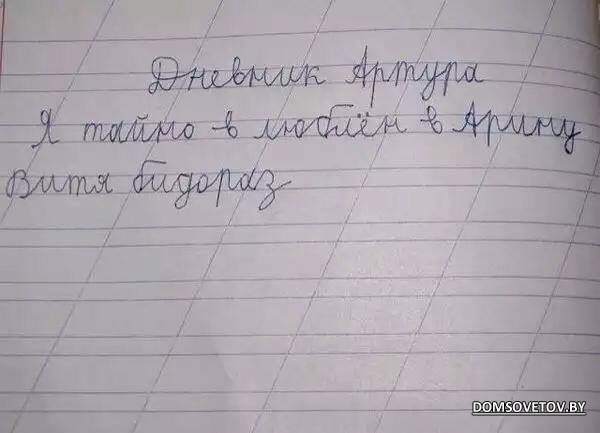 Дневник Артура
Я таймо в люблён в Арину
Витя бидораз
DOMSOVETOV.BY